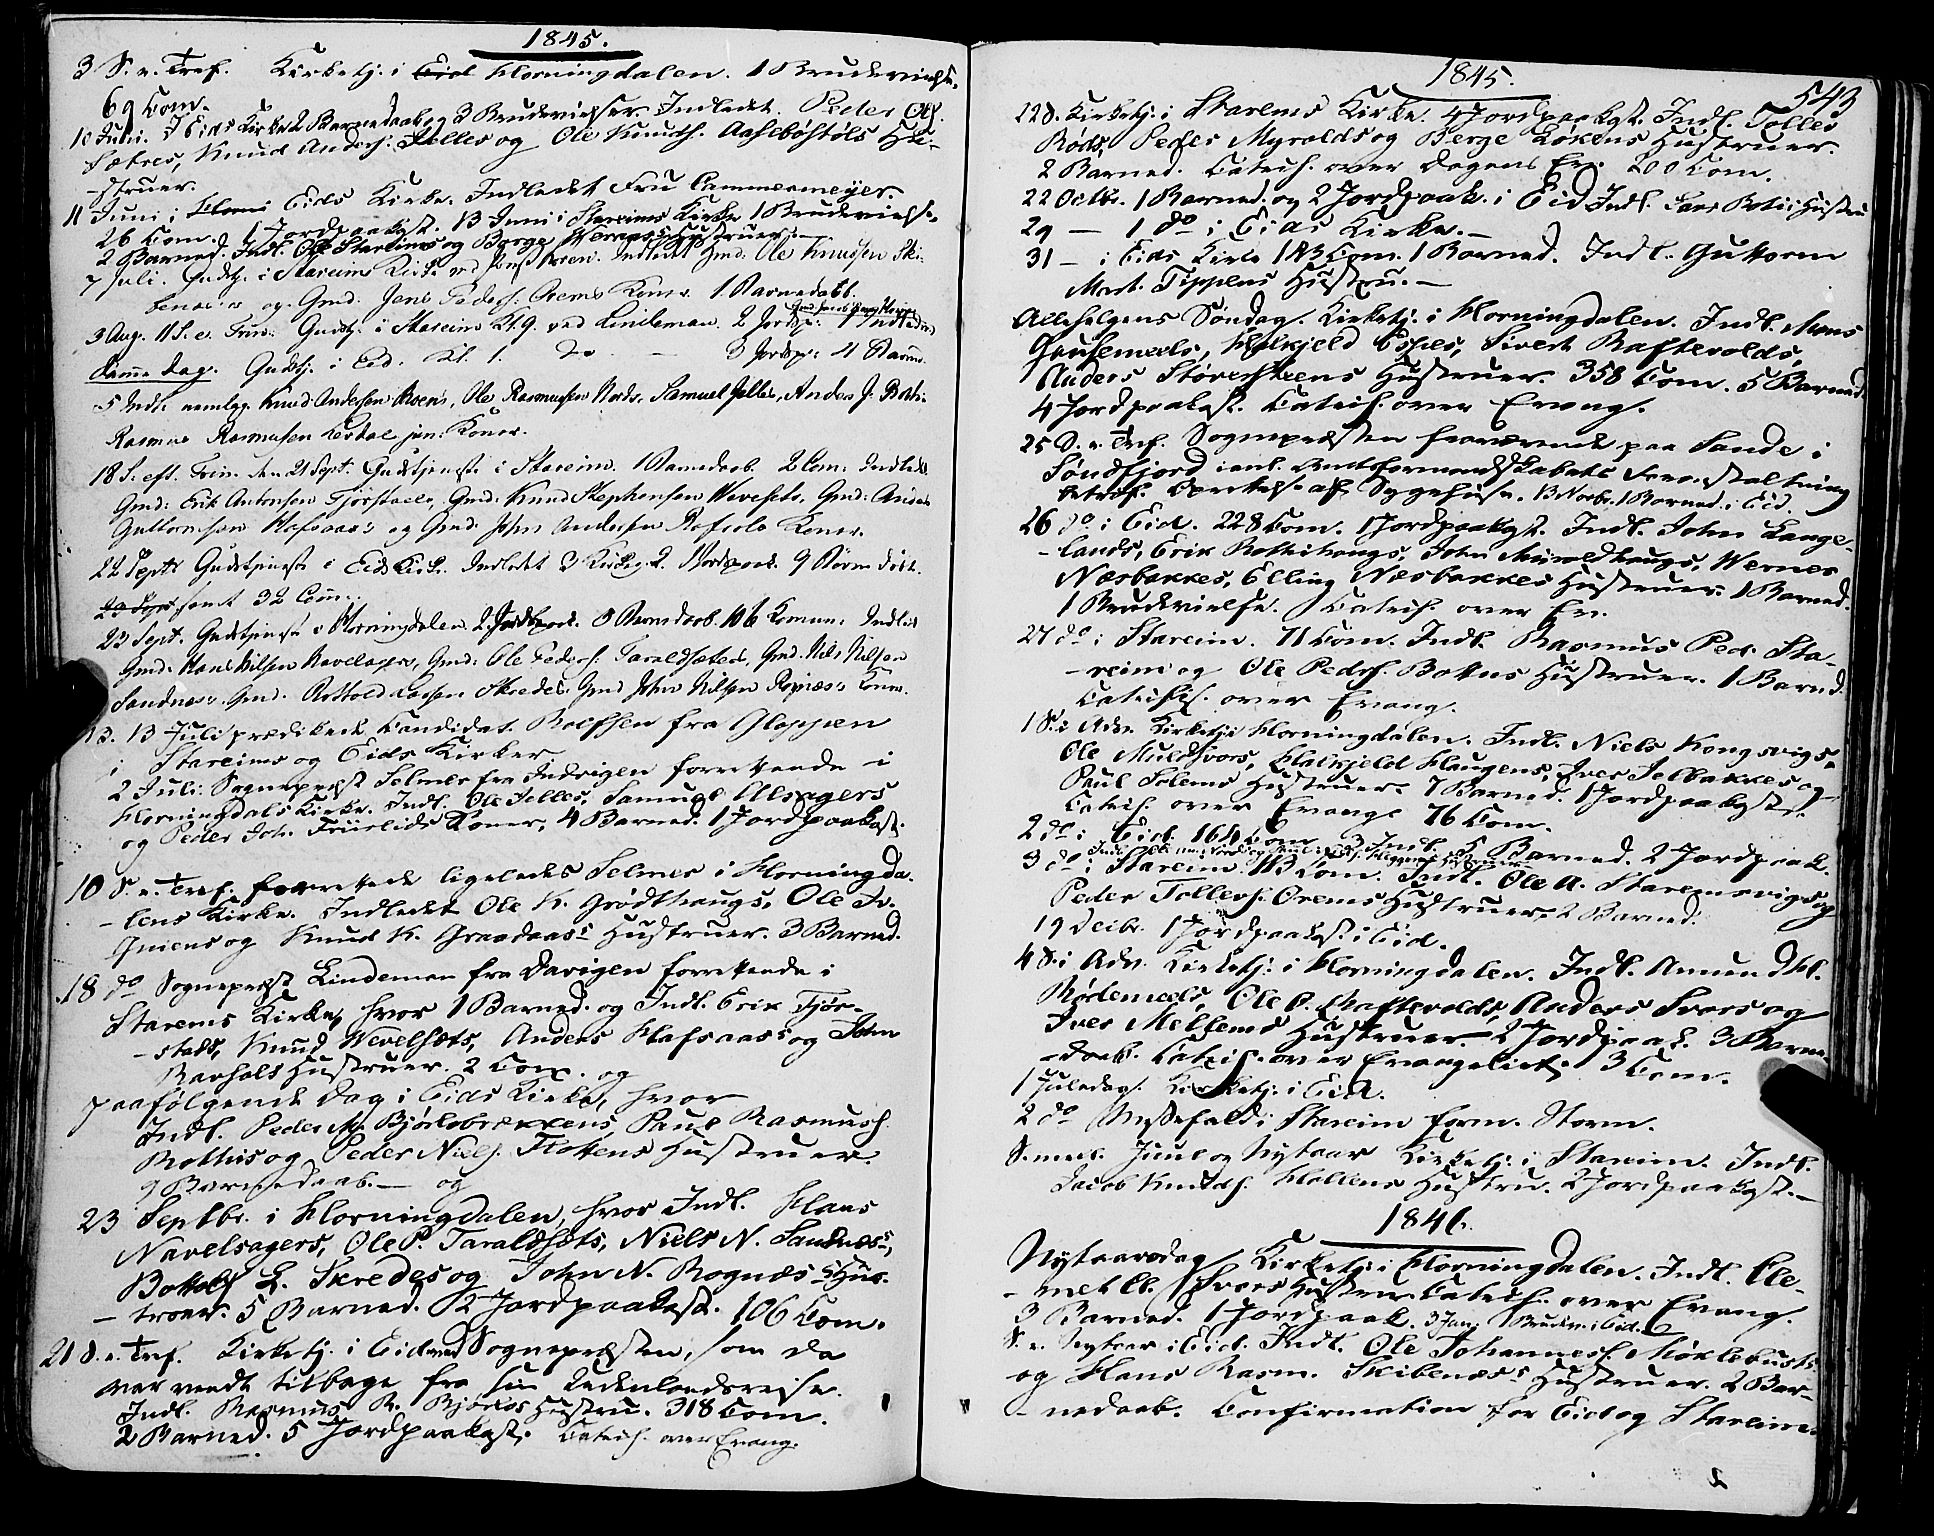 1845.
3 S. e. Tref. Kirketj. i Eid Hornindalen. 1 Brudevielse.
69 Com.
10 Juni. I Eids Kirke 2 Barnedaab og 3 Brudevielser. Indledet Peder Ols.
Sætres, Knud Anders. Hjelles og Ole Knuds. Aaseböstöls Hu-
-struer.
11 Juni i Horni Eids Kirke. Indledet Fru Cammermeyer
26 Com. 1 Jordpaakast. 13 Juni i Stareims Kirke 1 Brudevielse
2 Barned. Indl. Ole Stareims og Børge Hustruer.
7 Juli. Gudstj. i Stareim Kirke ved Indledet Gmd: Ole Knudsen Ski-
benæs og Gmd. Jens Peders. Orems Koner. 1 Barnedaab.
3 Aug. 11 S. e. Trin: Gudstj. i Stareim Kl. 9. ved Lindeman. 2 Jordp: Indledet
samme Dag. Gudstj. i Eid. Kl. 1. Do — 3 Jordp: 4 Barned.
5 Indl: nemlig: Knud Andersen Moens, Ole Rasmusen Nords, Samuel Hjelles, Anders J. Bothi
Rasmus Rasmusen Leivdal jun: Koner.
18 S. eft. Trin. den 21 Sept: Gudstjeneste i Stareim. 1 Barnedaab. 2 Com: Indledet
Gmd: Erik Antonsen Tjorstads, Gmd: Knud Stephensen Wevesets, Gmd: Anders
Guttormsen Hafsaas: og Gmd. John Andersen Koner.
22 Septr Gudstjeneste i Eids Kirke. Indledet 3 Jordpaak. 9 Børn døbt.
23 Septr samt 32 Com:
23 Sept. Gudstjeneste i Hornindalen. 2 Jordpaak. 5 Barnedaab. 106 Comm: Indledet
Gmd: Hans Nilsen Navelsager, Gmd: Ole Peders. Taraldsæters, Gmd. Nils Nilsen
Sandnes: Gmd. Bottold Larsen Skredes: Gmd John Nilsen Rognæs: Koner.
13. 13 Juli prædikede Candidat Rolfsen fra Gloppen
i Stareims og Eids Kirker
2 Juli: Sognepræst Selmer fra Indvigen forrettende i
Horningdals Kirke. Indl. Ole Jelles, Samuel Alsagers
og Peder Joh. Früslids Koner. 4 Barned. 1 Jordpaakast.
10 S. e. Tref. forrettede ligeledes Selmer i Horningda-
-lens Kirke. Indledet Ole K. Grødthaugs, Ole Iv.
Gniens og Knud K. Graadaas's Hustruer. 3 Barned.
18 do Sognepræst Lindeman fra Davigen forrettende i
Starems Kirke, hvor 1 Barned. og Indl. Erik Tjør-
-stads, Knud Wevelsets, Anders Hafsaas's og John
Ravhols Hustruer. 2 Com. og
paafølgende Dag i Eids Kirke, hvor
Indl. Peder M. Bjørlobrekkens, Paul Rasmuss.
Bothis og Peder Niels. Flotens Hustruer.
9 Barnedaab. — og
23 Septbr. i Horningdalen, hvor Indl. Hans
Navelsagers, Ole P. Taraldsets, Niels N. Sandnæs's,
Bottolf L. Skredes og John N. Rognæs's Hus-
-truer. 5 Barned. 2 Jordpaakast. 106 Com.
21 S. e. Tref. Kirketj. i Eid ved Sognepræsten, som da
var vendt tilbage fra sin Udenlandsreise.
Indl. Rasmus R. Bjørlos Hustru. 318 Com.
2 Barned. 5 Jordpaakast. Catech. over Evang.
1845.
543
22 S. Kirketj. i Starems Kirke. 4 Jordpaakst. Indl. Tolles
Røds, Peder Myrolds og Berge Løkens Hustruer.
2 Barned. Catech. over Dagens Ev. 200 Com.
22 Octbr. 1 Barned. og 2 Jordpaak. i Eid Indl. Lars Bothis Hustru
29 — 1 do i Eids Kirke. —
31 — i Eids Kirke 183 Com. 1 Barned. Indl. Guttorm
Mart. Tippens Hustru. —
Allehelgens Søndag. Kirketj. i Horningdalen. Indl. Mons
Gausemels, Halkjeld Espes, Sivert Raftevolds,
Anders Støversteens Hustruer. 358 Com. 5 Barned.
4 Jordpaakast. Catech. over Evang.
25 S. e. Tref. Sognepræsten fraværende paa Sande i
Søndfjord ianl. Amtsformandskabets Foranstaltning
betræf. Oprettelse af Sygehuse. 13 Novbr. 1 Barned. i Eid.
26 do i Eid. 228 Com. 1 Jordpaakst. Indl. John Lange-
-lands, Erik Bothihaugs, John Muroldhaugs, Wernes
Næsbakkes, Elling Næsbakkes Hustruer. 1 Barned.
1 Brudevielse. Catech. over Ev.
27 do i Stareim. 71 Com. Indl. Rasmus Ped. Sta-
-reims og Ole Peders. Bottns Hustruer. 1 Barnd.
Catechis. over Evang.
1 S. i Adv. Kirketj. i Horningdalen. Indl. Niels Kongsvigs,
Ole Muldsvors, Halkjeld Haugens, Iver Jelbakkes og
Paul Solems Hustruer. 7 Barned. 1 Jordpaakst.
Catech. over Evang. 76 Com.
2 do i Eid. 164 Com. 3 Indl. 5 Barned. 2 Jordpaak.
3 do i Stareim. 113 Com. Indl. Ole A. Staremsvigs og
Peder Tollevs. Orems Hustruer. 2 Barned.
19 Decbr. 1 Jordpaakast. i Eid.
4 S. i Adv. Kirketj. i Horningdalen. Indl. Amund H.
Rødemels, Ole O. Raftevolds, Anders Svors og
Iver Mellems Hustruer. 2 Jordpaak. 3 Barne-
-daab. Catechis. over Evangeliet. 3 Com.
1 Juledag. Kirketj. i Eid.
2 do Messefald i Stareim form. Storm.
S. mel. Juul og Nytaar Kirketj. i Stareim. Indl.
Jacob Knuds. Holtens Hustru. 2 Jordpaakst. —
1846.
Nytaarsdag Kirketj. i Horningdalen. Indl. Cle-
-met Cl. Svors Hustru Catech. over Evang.
3 Barned. 1 Jordpaak. 3 Jan. 1 Brudev. i Eid.
S. e. Nytaar i Eid. Indl. Ole Johanness. Myklebusts
og Hans Rasm. Skibenæs's Hustruer. 2 Bar-
-nedaab. Confirmation for Eid og Stareim.